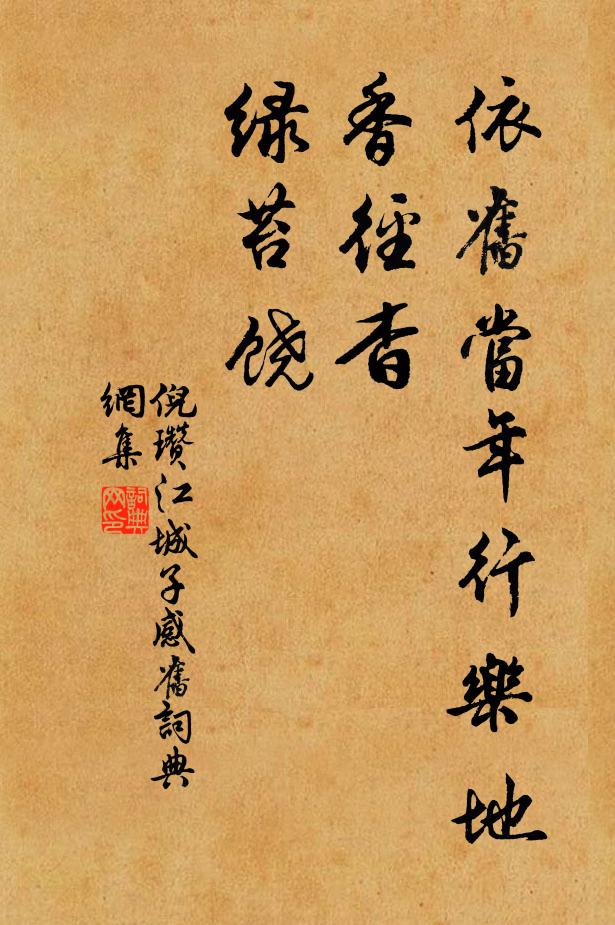 依舊當年行樂地
香徑杳
綠苔饒
倪瓚江城子感舊詞典
網集
詞典
网印